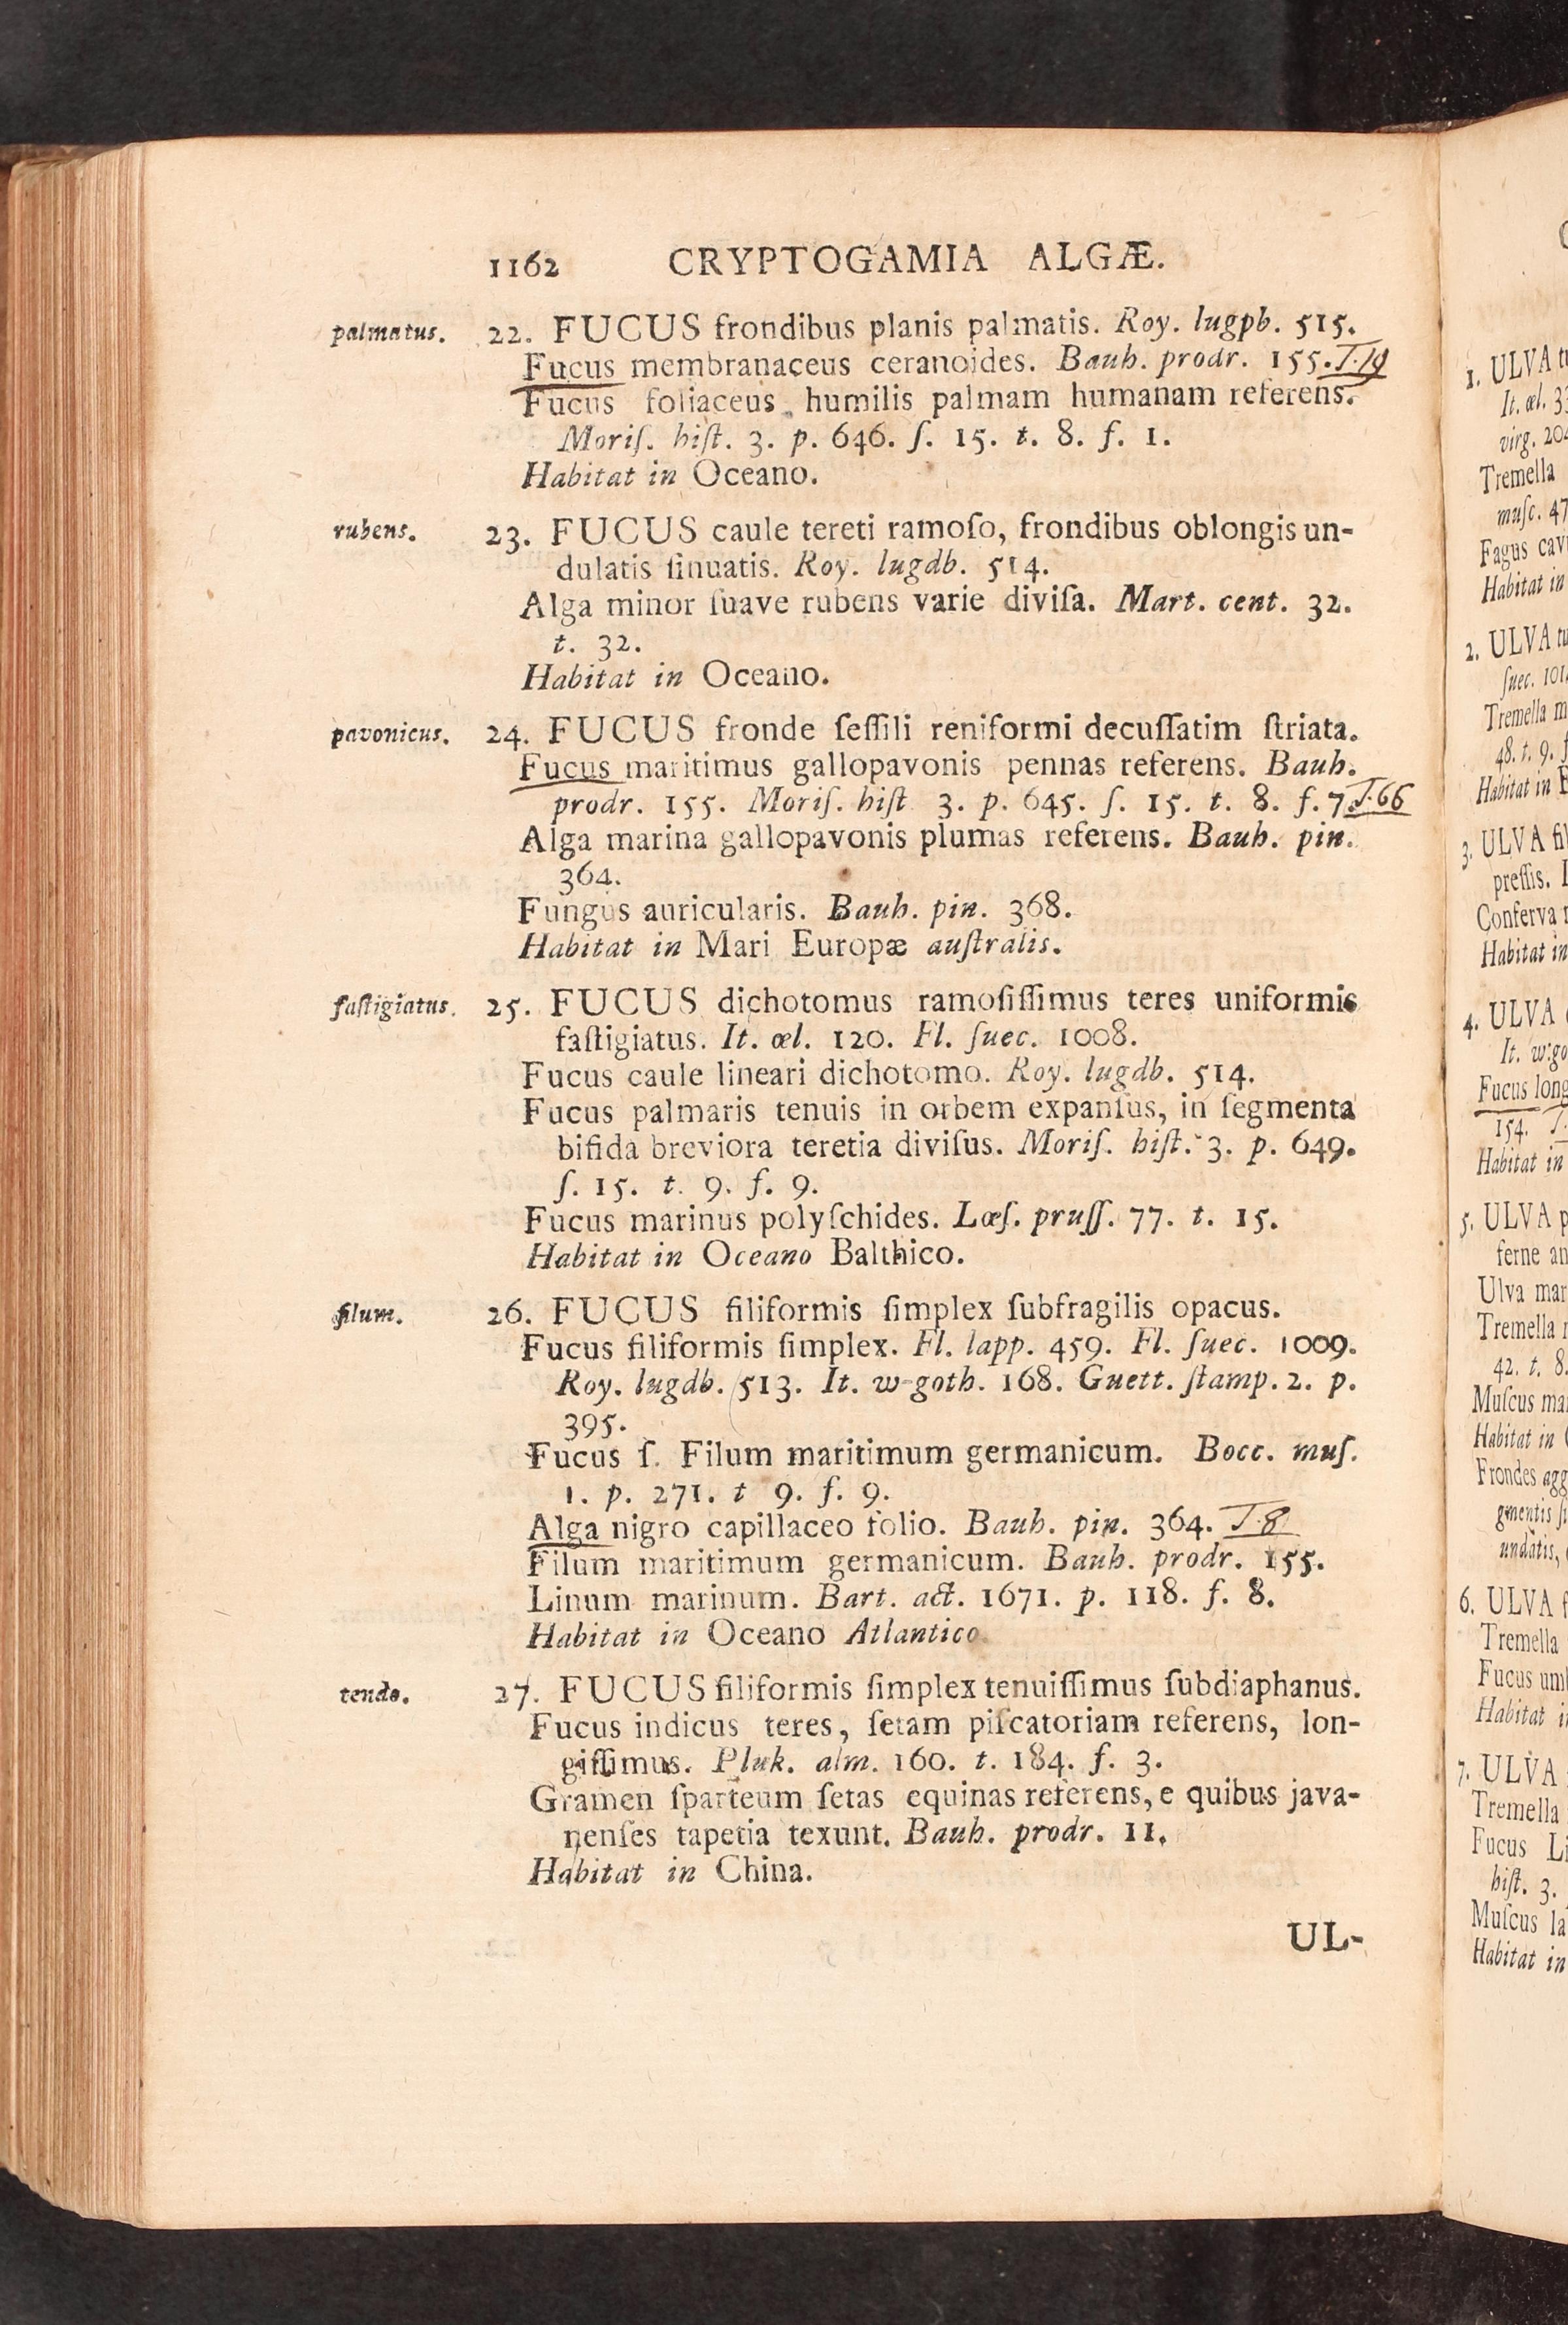 1162 CRYPTOGAMIA ALGÆ.
palmatus. 22. FUCUS frondibus planis palmatis. Roy. lugpb. 515.
Fucus membranaceus ceranoides. Bauh. prodr. 155. T.19
Fucus foliaceus humilis palmam humanam referens.
Moriſ. hiſt. 3. p. 646. ſ. 15. t. 8. f. 1.
Habitat in Oceano.
rubens. 23. FUCUS caule tereti ramoſo, frondibus oblongis un-
dulatis ſinuatis. Roy. lugdb. 514.
Alga minor ſuave rubens varie diviſa. Mart. cent. 32.
t. 32.
Habitat in Oceano.
pavonicus. 24. FUCUS fronde ſeſſili reniformi decuſſatim ſtriata.
Fucus maritimus gallopavonis pennas referens. Bauh.
prodr. 155. Moriſ. hiſt 3. p. 645. ſ. 15. t. 8. f. 7. T.66
Alga marina gallopavonis plumas referens. Bauh. pin.
364.
Fungus auricularis. Bauh. pin. 368.
Habitat in Mari Europæ auſtralis.
faſtigiatus. 25. FUCUS dichotomus ramoſiſſimus teres uniformis
faſtigiatus. It. œl. 120. Fl. ſuec. 1008.
Fucus caule lineari dichotomo. Roy. lugdb. 514.
Fucus palmaris tenuis in orbem expanſus, in ſegmenta
bifida breviora teretia diviſus. Moriſ. hiſt. 3. p. 649.
ſ. 15. t. 9. f. 9.
Fucus marinus polyſchides. Lœſ. pruſſ. 77. t. 15.
Habitat in Oceano Balthico.
filum. 26. FUCUS filiformis ſimplex ſubfragilis opacus.
Fucus filiformis ſimplex. Fl. lapp. 459. Fl. ſuec. 1009.
Roy. lugdb. 513. It. w-goth. 168. Guett. ſtamp. 2. p.
395.
Fucus ſ. Filum maritimum germanicum. Bocc. muſ.
1. p. 271. t 9. f. 9.
Alga nigro capillaceo folio. Bauh. pin. 364. T.8
Filum maritimum germanicum. Bauh. prodr. 155.
Linum marinum. Bart. act. 1671. p. 118. f. 8.
Habitat in Oceano Atlantico.
tendo. 27. FUCUS filiformis ſimplex tenuiſſimus ſubdiaphanus.
Fucus indicus teres, ſetam piſcatoriam referens, lon-
giſſimus. Pluk. alm. 160. t. 184. f. 3.
Gramen ſparteum ſetas equinas referens, e quibus java-
nenſes tapetia texunt. Bauh. prodr. 11.
Habitat in China.
UL-
1. ULVA
It. œl.
virg.
Tremella
muſc. 47
Fagus
Habitat in
2. ULVA
ſuec.
Tremella
48. t. 9.
Habitat in
3. ULVA
preſſis.
Conferva
Habitat in
4. ULVA
It.
Fucus
154.
Habitat in
5. ULVA
ferne
Ulva
Tremella
42. t. 8.
Muſcus
Habitat in
Frondes
gmentis
undatis,
6. ULVA
Tremella
Fucus
Habitat
7. ULVA
Tremella
Fucus
hiſt. 3.
Muſcus
Habitat in